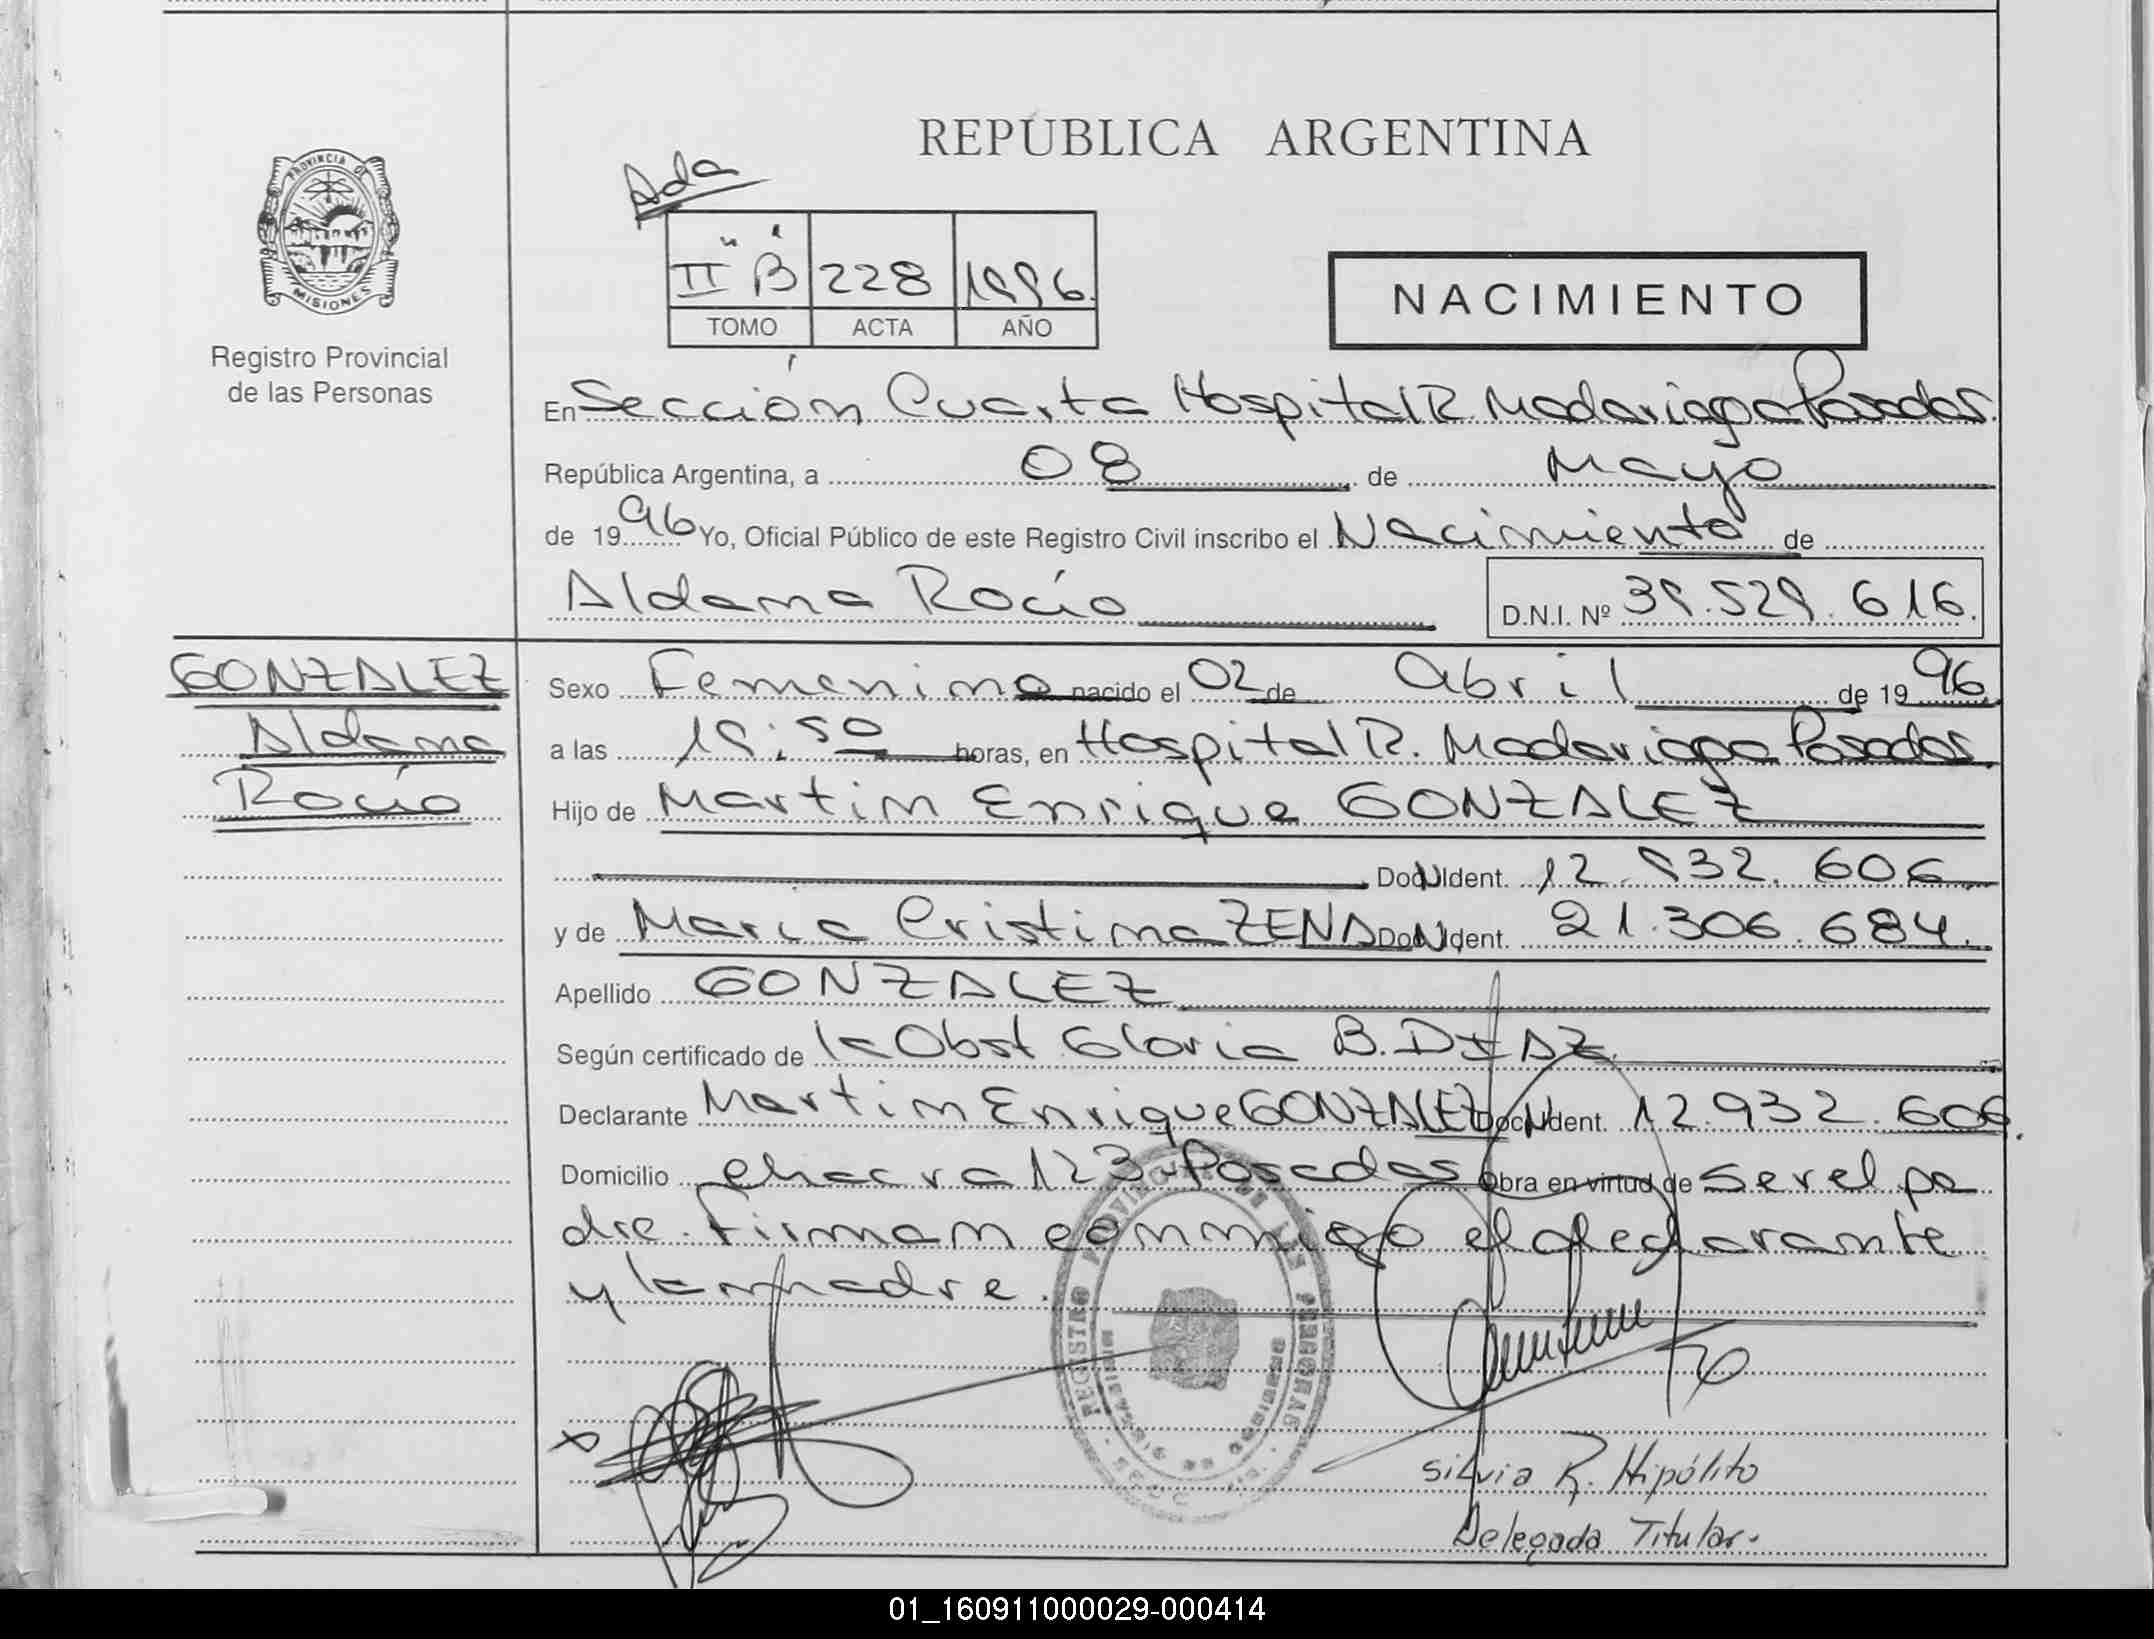 REPUBLICA ARGENTINA
PROVINCIA DE
MISIONES
Registro Provincial
de las Personas
Ada
II "B" 228 1996.
TOMO ACTA AÑO
NACIMIENTO
En Sección Cuarta Hospital R. Madariaga Posadas.
República Argentina, a 08 de Mayo
de 1996 Yo, Oficial Público de este Registro Civil inscribo el Nacimiento de
Aldana Rocío D.N.I. Nº 39.529.616.
GONZALEZ
Aldana
Rocío
Sexo Femenino nacido el 02 de Abril de 1996.
a las 19:50 horas, en Hospital R. Madariaga Posadas.
Hijo de Martin Enrique GONZALEZ
Doc. Ident. 12.932.606
y de María Cristina ZENA Doc. Ident. 21.306.684.
Apellido GONZALEZ
Según certificado de la Obst Gloria B. DIAZ
Declarante Martin Enrique GONZALEZ Doc. Ident. 12.932.606.
Domicilio chacra 123-Posadas Obra en virtud de ser el pa
dre. Firman conmigo el declarante
y la madre.
REGISTRO PROVINCIAL DE LAS PERSONAS
Silvia R. Hipólito
Delegada Titular.
01_160911000029-000414